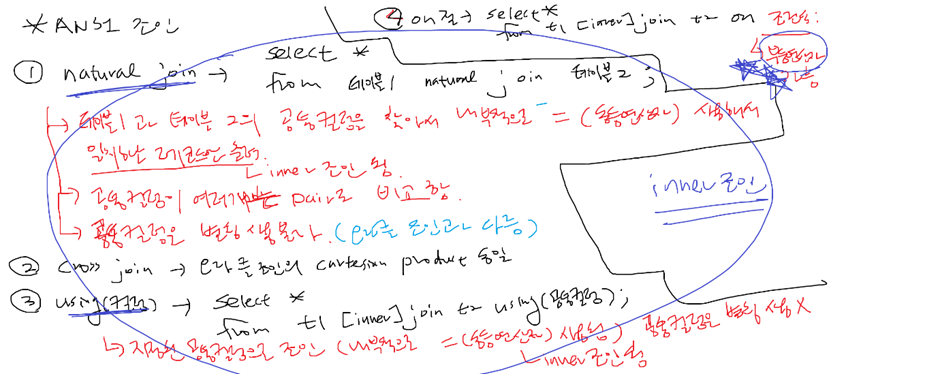 *ANSI 조인
① natural join → select *
from 테이블1 natural join 테이블2 ;
→ 테이블1과 테이블2의 공통컬럼을 찾아서 내부적으로 = (동등연산자) 사용해서
일치하는 레코드만 출력.
→ inner 조인 형
→ 공통컬럼이 여러개 pair로 비교함.
→ 공통컬럼은 별칭 사용불가. (오라클 조인과 다름)
② cross join → 오라클조인의 cartesian product 동일
③ using(컬럼) → select *
from t1 [inner] join t2 using(공통컬럼);
→ 지정된 공통컬럼으로 조인 (내부적으로 = (동등연산자) 사용됨) 공통컬럼은 별칭 사용 X
→ inner 조인 형
④ on절 → select *
from t1 [inner] join t2 on 조건식;
→ 부등연산자
가능
inner 조인